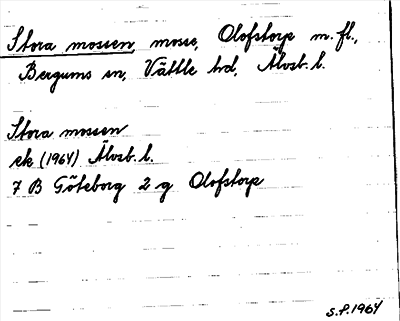 Stora mossen, mosse, Olofstorp m.fl.,
Bergums sn, Vättle hd, Älvsb. l.
Stora mossen
ek (1964) Älvsb. l.
7 B Göteborg 2 g Olofstorp
S.P. 1964